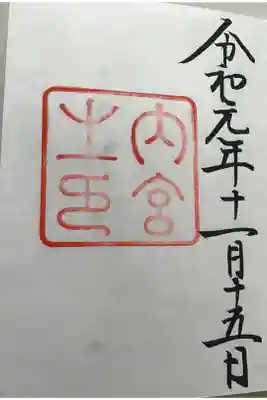 令和元年十一月十五日
内宮
之印